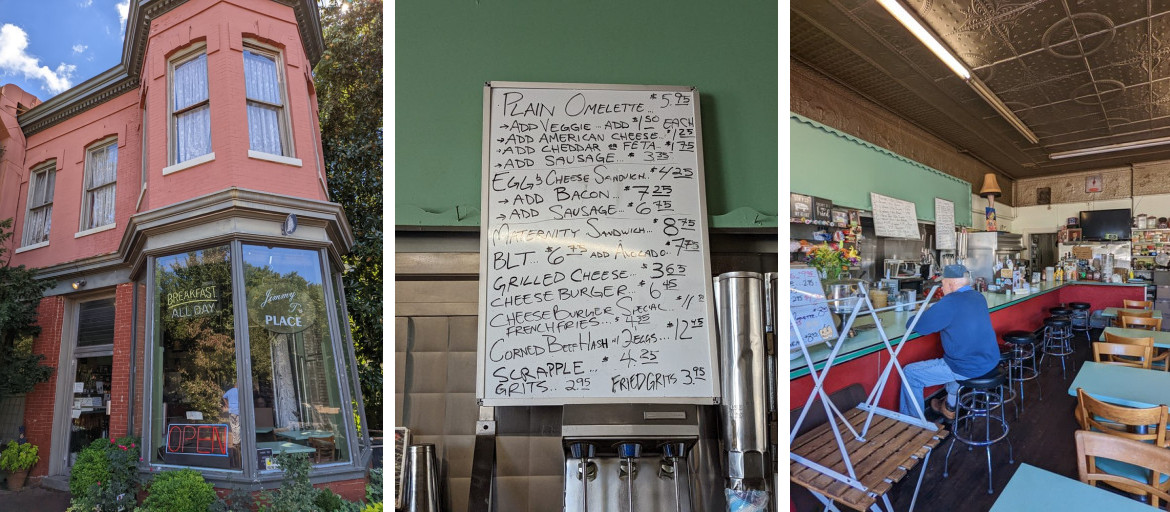 BREAKFAST
ALL DAY
Jimmy
T's
PLACE
OPEN
PLAIN OMELETTE... $5.95
→ADD VEGGIE... ADD $1.50 EACH
→ADD AMERICAN CHEESE.. $1.25
→ADD CHEDDAR OR FETA. $1.75
→ADD SAUSAGE... $3.35
EGG & CHEESE SANDWICH.. $4.25
→ADD BACON.. $7.25
→ADD SAUSAGE.. $6.75
MATERNITY SANDWICH.. $8.75
BLT.. $6.75 ADD AVOCADO.. $7.75
GRILLED CHEESE... $3.65
CHEESE BURGER... $6.45
CHEESE BURGER SPECIAL...
FRENCH FRIES... $4.25
CORNED BEEF HASH W/ 2 EGGS... $12.45
SCRAPPLE... $4.25
GRITS... 2.95 FRIED GRITS 3.95